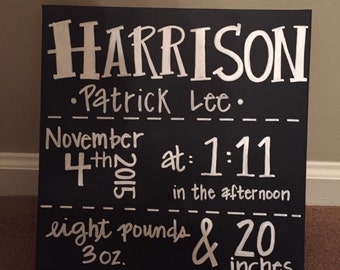 HARRISON
• Patrick Lee •
November
4th 2015
at: 1:11
in the afternoon
eight pounds
3oz.
& 20
inches